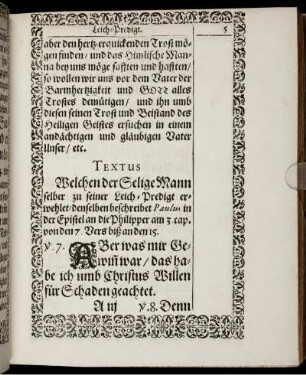 Leich-Predigt. 5
aber den hertz-erquickenden Trost mö-
gen finden / und das Himlische Man-
na bey uns möge safften und hafften /
so wollen wir uns vor dem Vater der
Barmhertzigkeit und GOTT alles
Trostes demütigen / und ihn umb
diesen seinen Trost und Beistand des
Heiligen Geistes ersuchen in einem
andächtigen und gläubigen Vater
Unser / etc.
TEXTUS
Welchen der Selige Mann
selber zu seiner Leich-Predigt er-
wehlet / denselben beschreibet Paulus in
der Epistel an die Philipper am 3. cap.
von den 7. Vers biß an den 15.
℣. 7. ABer was mir Ge-
wiñ war / das ha-
be ich umb Christus Willen
für Schaden geachtet.
A iij ℣. 8. Denn